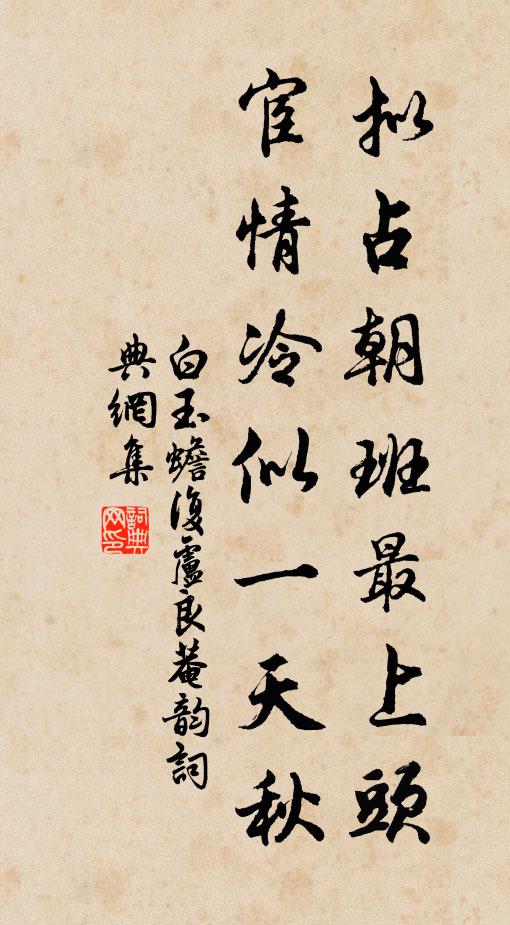 拟占朝班最上頭
宦情冷似一天秋
白玉蟾復盧良菴韵詞
典網集
詞典
网印